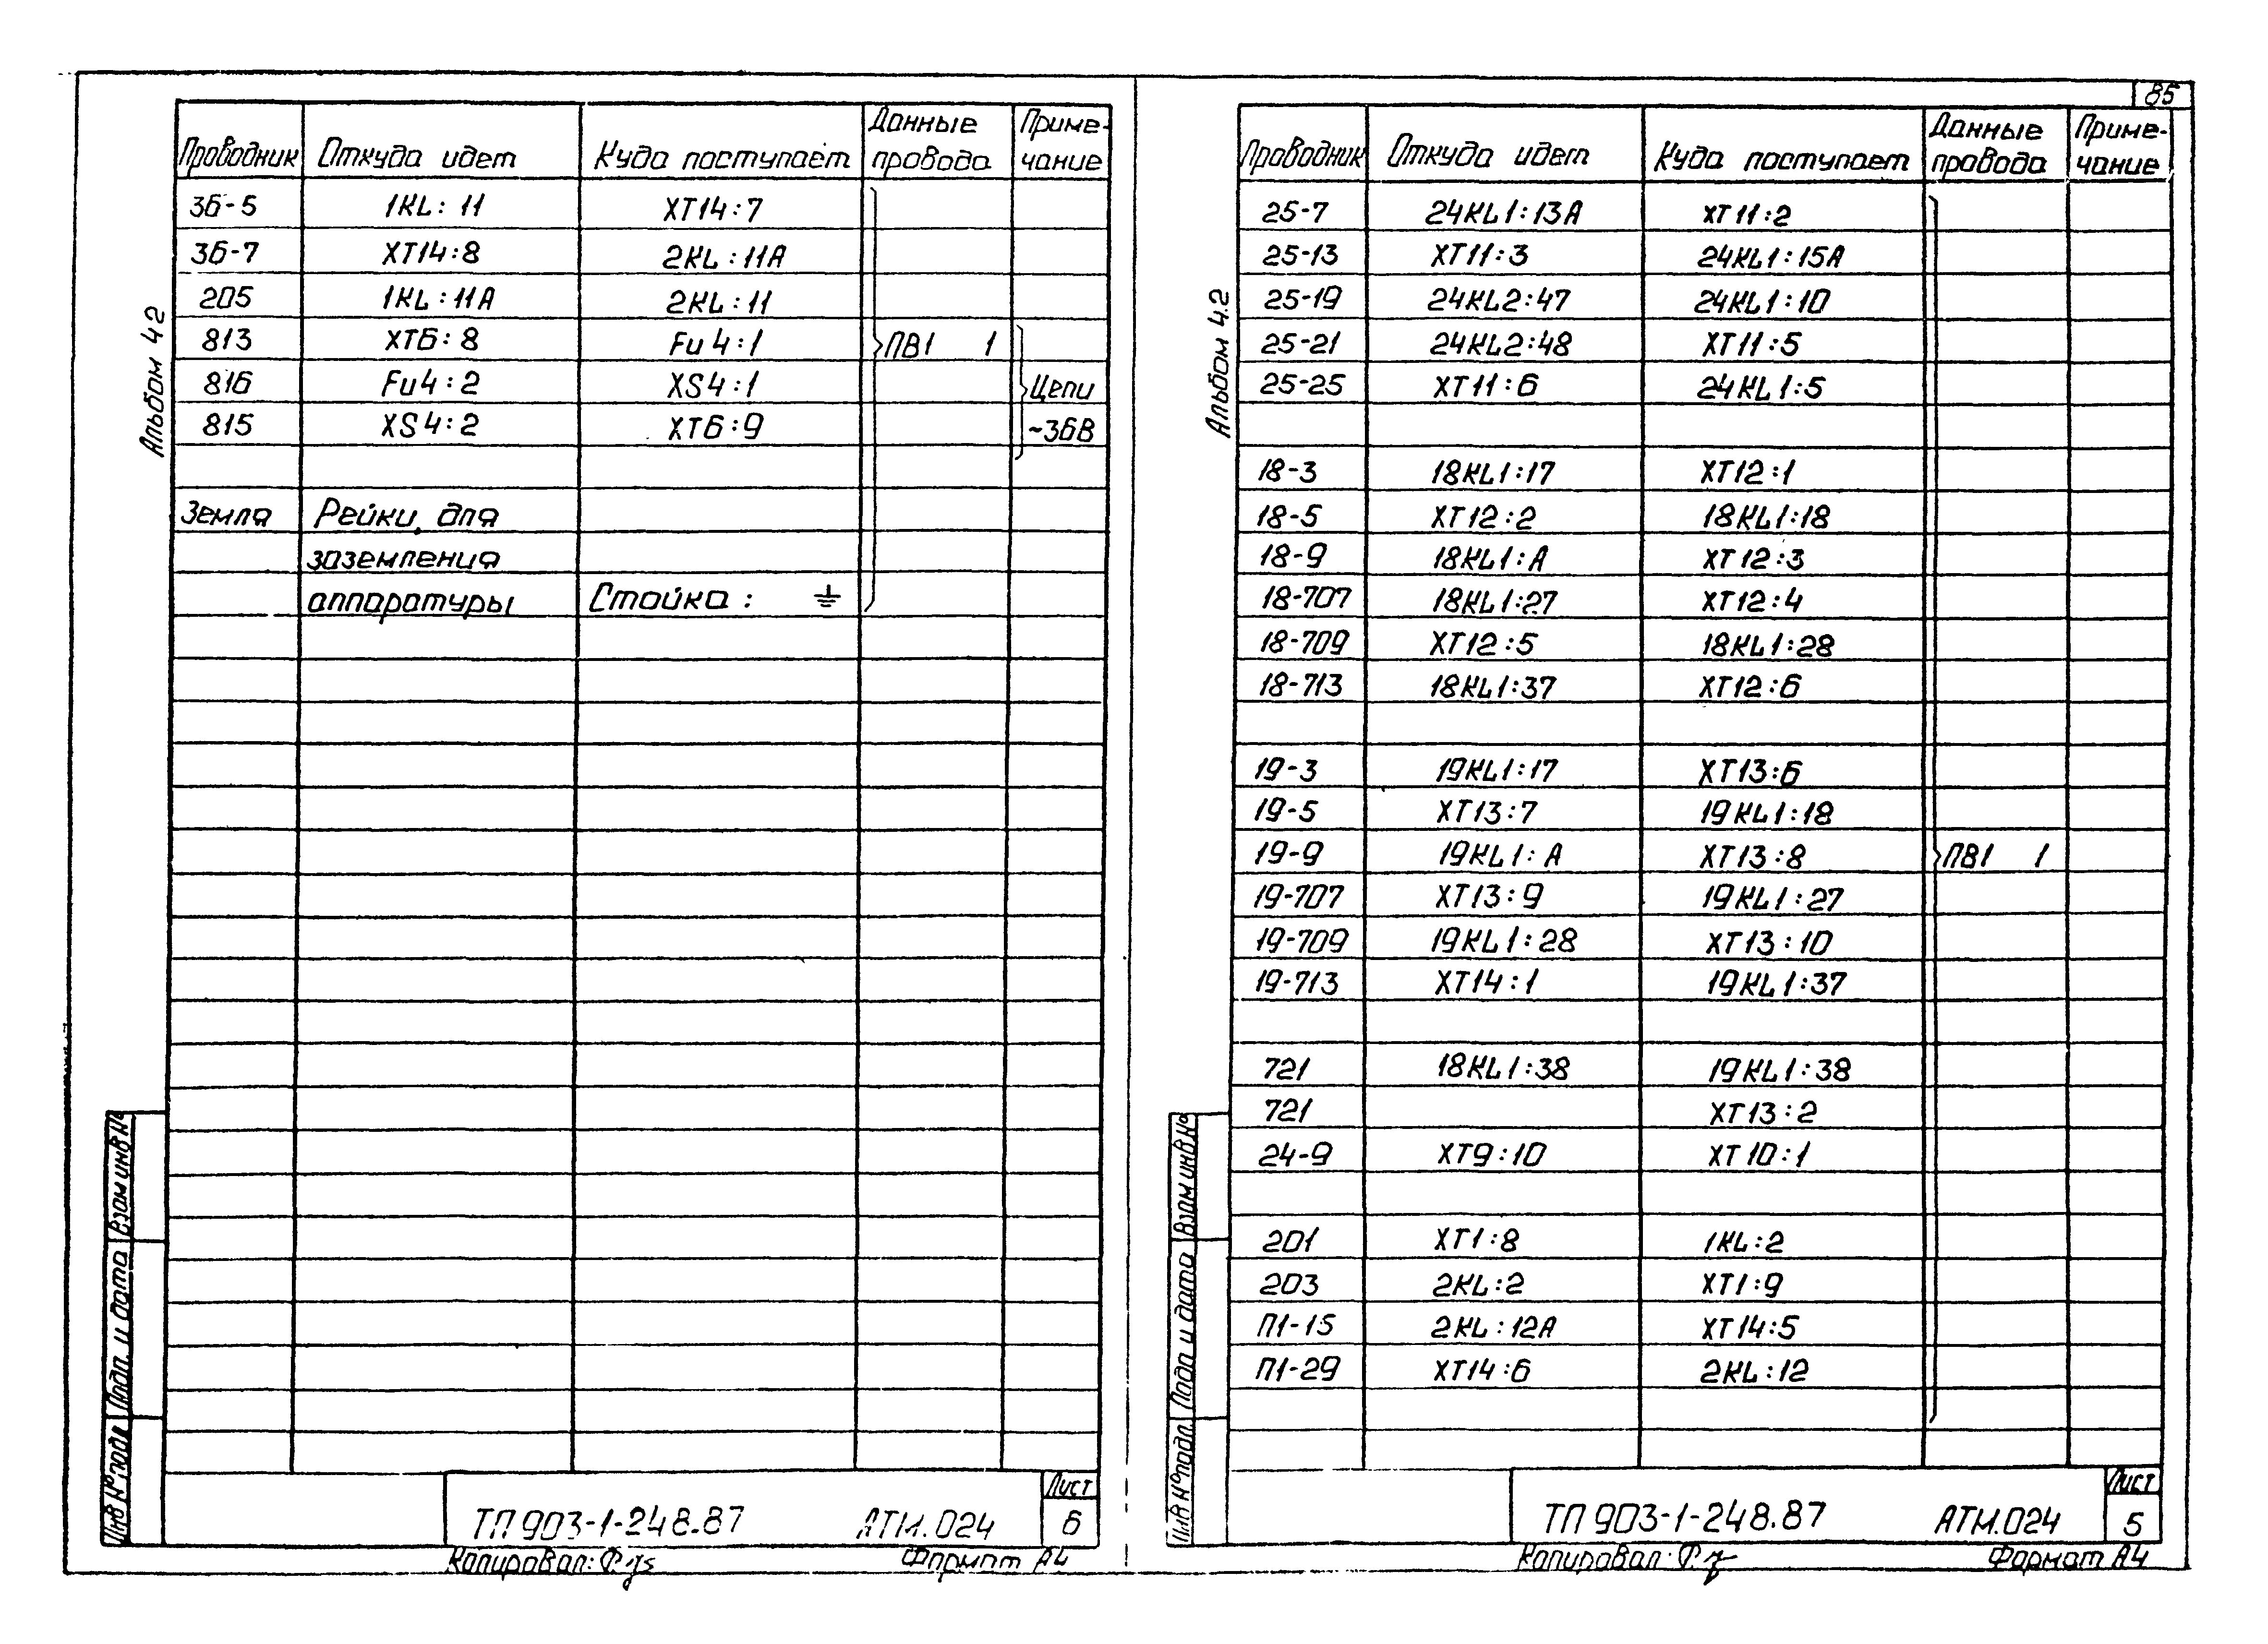 85
Альбом 4.2
Проводник Откуда идет Куда поступает Данные провода Приме-чание
36-5 1KL:11 XT14:7
36-7 XT14:8 2KL:11А
205 1KL:11А 2KL:11
813 XT6:8 Fu4:1 ПВ1 1
816 Fu4:2 XS4:1 Цепи
815 XS4:2 XT6:9 ~36В
Земля Рейки для
заземления
аппаратуры Стойка: ⏚
Взам инв №
Подп. и дата
Инв № подл
ТП 903-1-248.87 АТМ.024 Лист 6
Копировал: Формат А4
Альбом 4.2
Проводник Откуда идет Куда поступает Данные провода Приме-чание
25-7 24KL1:13А XT11:2
25-13 XT11:3 24KL1:15А
25-19 24KL2:47 24KL1:10
25-21 24KL2:48 XT11:5
25-25 XT11:6 24KL1:5
18-3 18KL1:17 XT12:1
18-5 XT12:2 18KL1:18
18-9 18KL1:А XT12:3
18-707 18KL1:27 XT12:4
18-709 XT12:5 18KL1:28
18-713 18KL1:37 XT12:6
19-3 19KL1:17 XT13:6
19-5 XT13:7 19KL1:18
19-9 19KL1:А XT13:8 ПВ1 1
19-707 XT13:9 19KL1:27
19-709 19KL1:28 XT13:10
19-713 XT14:1 19KL1:37
721 18KL1:38 19KL1:38
721 XT13:2
24-9 XT9:10 XT10:1
201 XT1:8 1KL:2
203 2KL:2 XT1:9
П1-15 2KL:12А XT14:5
П1-29 XT14:6 2KL:12
Взам инв №
Подп и дата
Инв № подл.
ТП 903-1-248.87 АТМ.024 Лист 5
Копировал: Формат А4